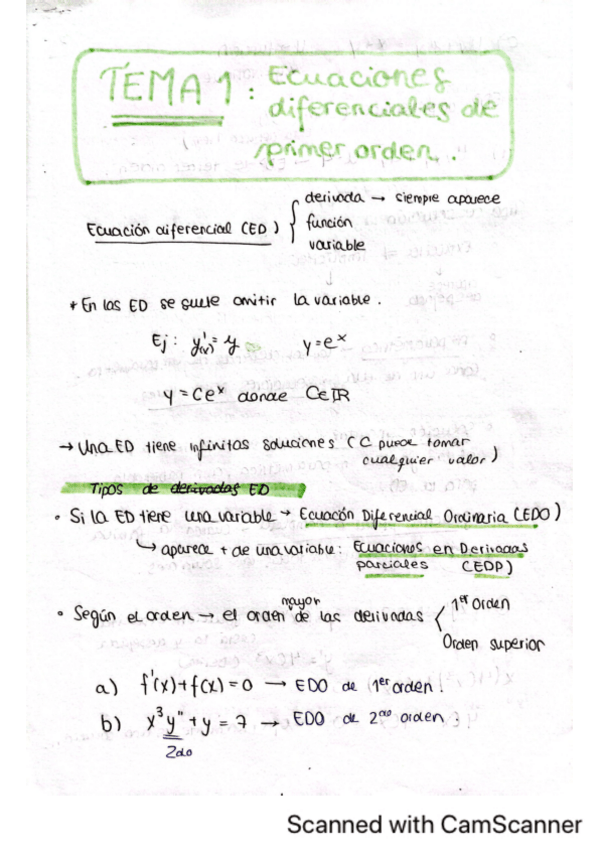 TEMA 1: Ecuaciones
diferenciales de
primer orden.
derivada → siempre aparece
Ecuación diferencial (ED) { función
variable
* En las ED se suele omitir la variable.
Ej: y'(x) = y y = e^x
y = Ce^x donde C ∈ ℝ
→ Una ED tiene infinitas soluciones (C puede tomar
cualquier valor)
Tipos de derivadas ED
• Si la ED tiene una variable → Ecuación Diferencial Ordinaria (EDO)
↳ aparece + de una variable: Ecuaciones en Derivadas
parciales (EDP)
mayor
• Según el orden → el orden de las derivadas
1er orden
Orden superior
a) f'(x) + f(x) = 0 → EDO de 1er orden.
b) x³y'' + y = 7 → EDO de 2do orden
2do
Scanned with CamScanner